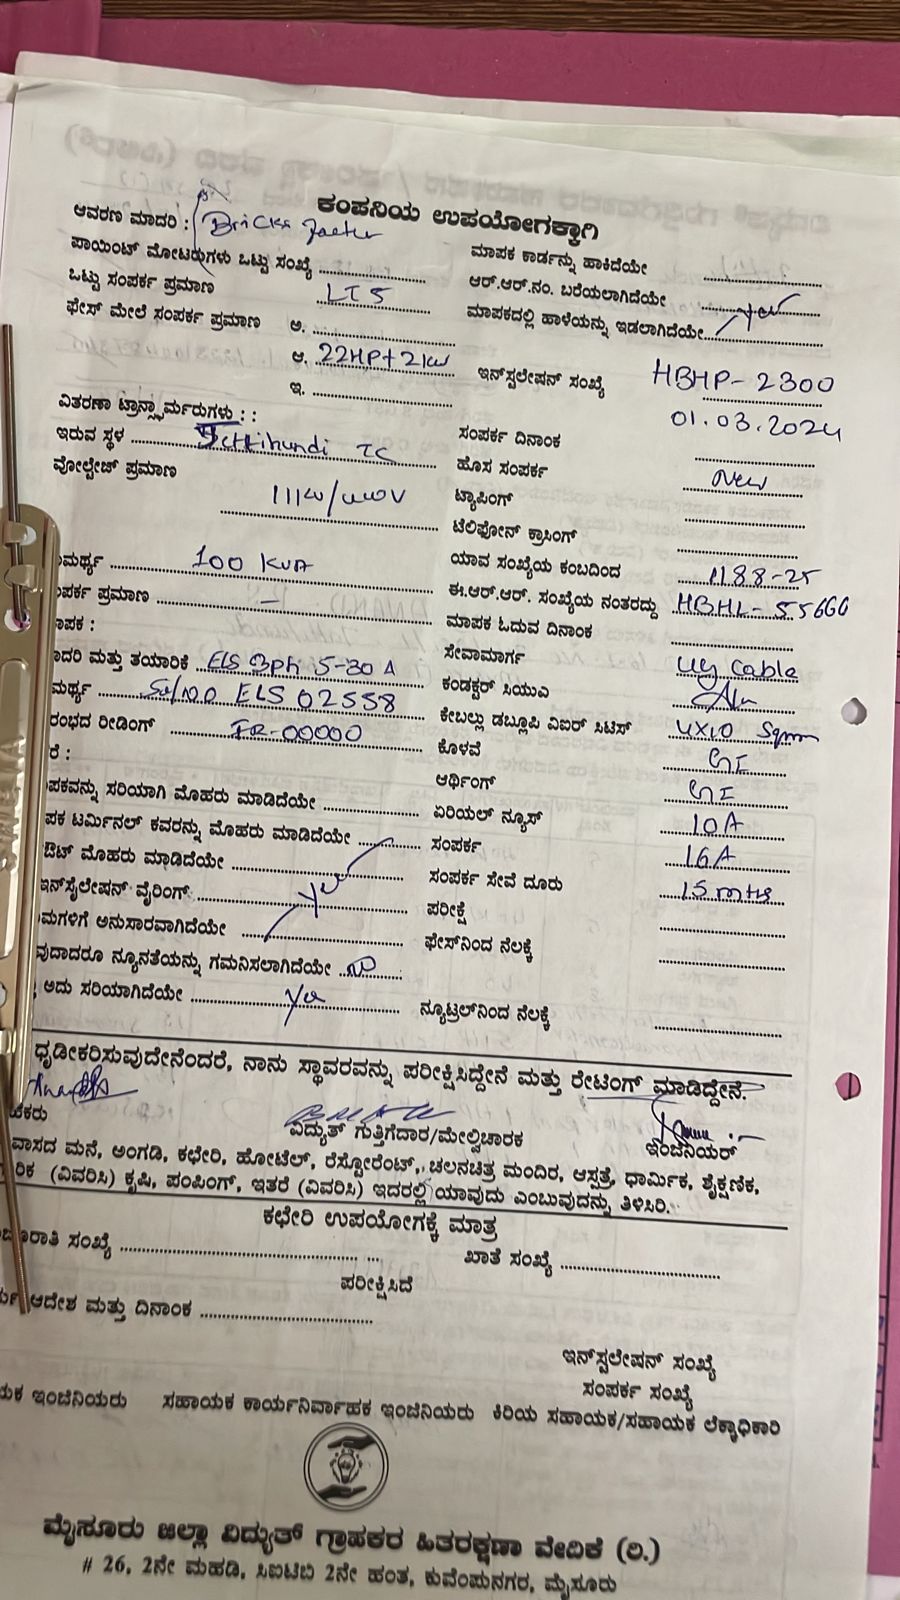 ಕಂಪನಿಯ ಉಪಯೋಗಕ್ಕಾಗಿ
ಆವರಣ ಮಾದರಿ : Bricks
ಪಾಯಿಂಟ್ ಮೋಟರುಗಳು ಒಟ್ಟು ಸಂಖ್ಯೆ
ಒಟ್ಟು ಸಂಪರ್ಕ ಪ್ರಮಾಣ LT5
ಫೇಸ್ ಮೇಲೆ ಸಂಪರ್ಕ ಪ್ರಮಾಣ ಅ.
ಆ. 22HP+2KW
ಇ.
ವಿತರಣಾ ಟ್ರಾನ್ಸ್ಫಾರ್ಮರುಗಳು : :
ಇರುವ ಸ್ಥಳ Jettihundi TC
ವೋಲ್ಟೇಜ್ ಪ್ರಮಾಣ
ಮರ್ಥ್ಯ 100 KVA
ಪರ್ಕ ಪ್ರಮಾಣ –
ಾಪಕ :
ಾದರಿ ಮತ್ತು ತಯಾರಿಕೆ ELS 3ph 5-30 A
ಮರ್ಥ್ಯ ELS 02558
ರಂಭದ ರೀಡಿಂಗ್ IR-00000
ರೆ :
ಪಕವನ್ನು ಸರಿಯಾಗಿ ಮೊಹರು ಮಾಡಿದೆಯೇ
ಪಕ ಟರ್ಮಿನಲ್ ಕವರನ್ನು ಮೊಹರು ಮಾಡಿದೆಯೇ
ಔಟ್ ಮೊಹರು ಮಾಡಿದೆಯೇ
ಇನ್‌ಸ್ಟೈಲೇಷನ್ ವೈರಿಂಗ್ yes
ಮಗಳಿಗೆ ಅನುಸಾರವಾಗಿದೆಯೇ
ವುದಾದರೂ ನ್ಯೂನತೆಯನ್ನು ಗಮನಿಸಲಾಗಿದೆಯೇ no
ಅದು ಸರಿಯಾಗಿದೆಯೇ yes
ಮಾಪಕ ಕಾರ್ಡನ್ನು ಹಾಕಿದೆಯೇ
ಆರ್.ಆರ್.ನಂ. ಬರೆಯಲಾಗಿದೆಯೇ yes
ಮಾಪಕದಲ್ಲಿ ಹಾಳೆಯನ್ನು ಇಡಲಾಗಿದೆಯೇ
ಇನ್‌ಸ್ಟಲೇಷನ್ ಸಂಖ್ಯೆ HBHP-2300
ಸಂಪರ್ಕ ದಿನಾಂಕ 01.03.2024
ಹೊಸ ಸಂಪರ್ಕ New
ಟ್ಯಾಪಿಂಗ್
ಟೆಲಿಫೋನ್ ಕ್ರಾಸಿಂಗ್
ಯಾವ ಸಂಖ್ಯೆಯ ಕಂಬದಿಂದ 1188-25
ಈ.ಆರ್.ಆರ್. ಸಂಖ್ಯೆಯ ನಂತರದ್ದು HBHL-55660
ಮಾಪಕ ಓದುವ ದಿನಾಂಕ
ಸೇವಾಮಾರ್ಗ UG Cable
ಕಂಡಕ್ಟರ್ ಸಿಯುವಿ
ಕೇಬಲ್ಲು ಡಬ್ಲೂಪಿ ವಿಐರ್ ಸಿಟಿಸ್ 4X10 Sqmm
ಕೊಳವೆ GI
ಆರ್ಥಿಂಗ್ GI
ಏರಿಯಲ್ ನ್ಯೂಸ್ 10A
ಸಂಪರ್ಕ 16A
ಸಂಪರ್ಕ ಸೇವೆ ದೂರು 15mtrs
ಪರೀಕ್ಷೆ
ಫೇಸ್‌ನಿಂದ ನೆಲಕ್ಕೆ
ನ್ಯೂಟ್ರಲ್‌ನಿಂದ ನೆಲಕ್ಕೆ
ಧೃಡೀಕರಿಸುವುದೇನೆಂದರೆ, ನಾನು ಸ್ಥಾವರವನ್ನು ಪರೀಕ್ಷಿಸಿದ್ದೇನೆ ಮತ್ತು ರೇಟಿಂಗ್ ಮಾಡಿದ್ದೇನೆ.
ಹಕರು ವಿದ್ಯುತ್ ಗುತ್ತಿಗೆದಾರ/ಮೇಲ್ವಿಚಾರಕ ಇಂಜಿನಿಯರ್
ವಾಸದ ಮನೆ, ಅಂಗಡಿ, ಕಛೇರಿ, ಹೋಟೆಲ್, ರೆಸ್ಟೋರೆಂಟ್, ಚಲನಚಿತ್ರ ಮಂದಿರ, ಆಸ್ಪತ್ರೆ, ಧಾರ್ಮಿಕ, ಶೈಕ್ಷಣಿಕ,
ರಿಕ (ವಿವರಿಸಿ) ಕೃಷಿ, ಪಂಪಿಂಗ್, ಇತರೆ (ವಿವರಿಸಿ) ಇದರಲ್ಲಿ ಯಾವುದು ಎಂಬುವುದನ್ನು ತಿಳಿಸಿರಿ.
ಕಛೇರಿ ಉಪಯೋಗಕ್ಕೆ ಮಾತ್ರ
ಸಂಖ್ಯೆ ಖಾತೆ ಸಂಖ್ಯೆ
ಪರೀಕ್ಷಿಸಿದೆ
ಆದೇಶ ಮತ್ತು ದಿನಾಂಕ
ಇನ್‌ಸ್ಟಲೇಷನ್ ಸಂಖ್ಯೆ
ಸಂಪರ್ಕ ಸಂಖ್ಯೆ
ಯಕ ಇಂಜಿನಿಯರು ಸಹಾಯಕ ಕಾರ್ಯನಿರ್ವಾಹಕ ಇಂಜಿನಿಯರು ಕಿರಿಯ ಸಹಾಯಕ/ಸಹಾಯಕ ಲೆಕ್ಕಾಧಿಕಾರಿ
ಮೈಸೂರು ಜಿಲ್ಲಾ ವಿದ್ಯುತ್ ಗ್ರಾಹಕರ ಹಿತರಕ್ಷಣಾ ವೇದಿಕೆ (ರಿ.)
# 26, 2ನೇ ಮಹಡಿ, ಸಿಐಟಿಬಿ 2ನೇ ಹಂತ, ಕುವೆಂಪುನಗರ, ಮೈಸೂರು